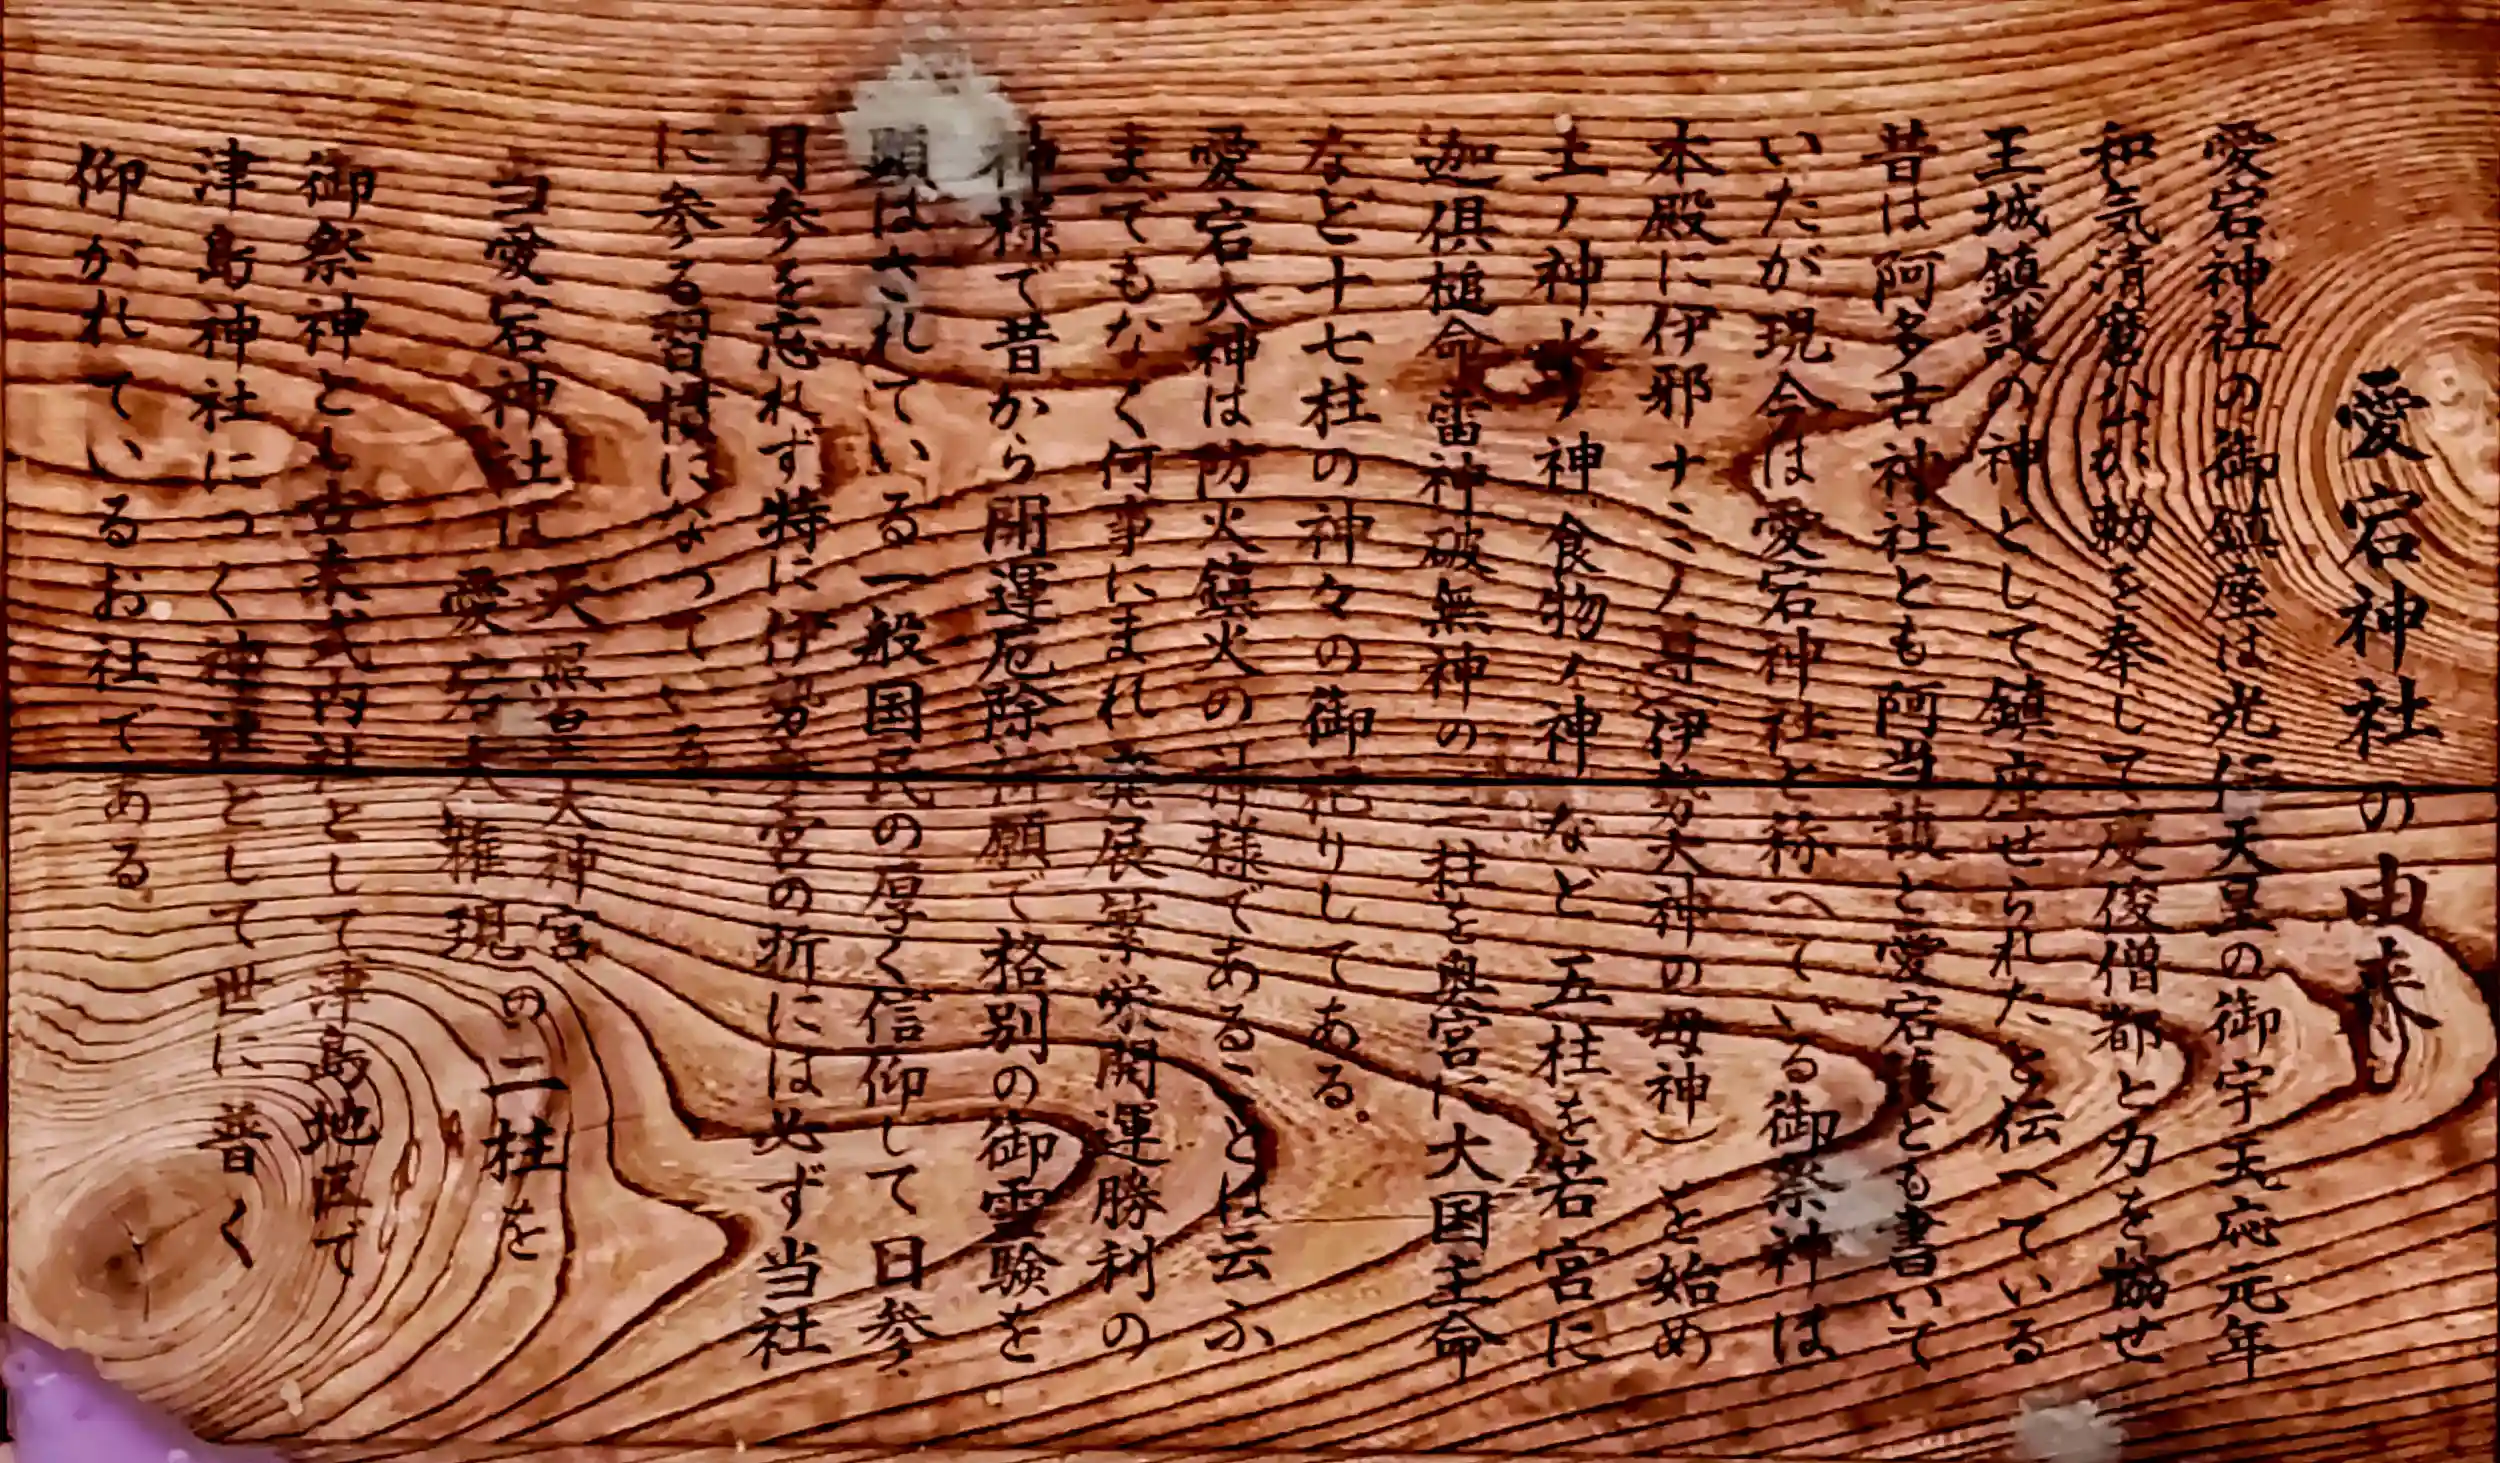 愛宕神社の由来
愛宕神社の御鎮座は光仁天皇の御宇天応元年
和気清麿公が勅を奉して慶俊僧都と力を協せ
王城鎮護の神として鎮座せられたと伝へている
昔は阿多古神社とも阿当護と愛宕護とも書いて
いたが現今は愛宕神社と称へている御祭神は
本殿に伊邪ナミノ尊(伊勢大神の母神)を始め
土ノ神 火ノ神 食物ノ神 など五柱を若宮に
迦倶槌命 雷神 破無神の三柱を奥宮に大国主命
など十七柱の神々の御祀りしてある。
愛宕大神は防火鎮火の神様であることは云ふ
までもなく何事にまれ発展繁栄開運勝利の
神様で昔から開運厄除祈願で格別の御霊験を
顕はされている一般国民の厚く信仰して日参
月参を忘れず特に伊勢参宮の折には必ず当社
に参る習慣になっている
当愛宕神社は 天照皇大神宮
愛宕大権現 の二柱を
御祭神とし古来式内社として津島地区で
津島神社につく神社として世に普く
仰がれているお社である